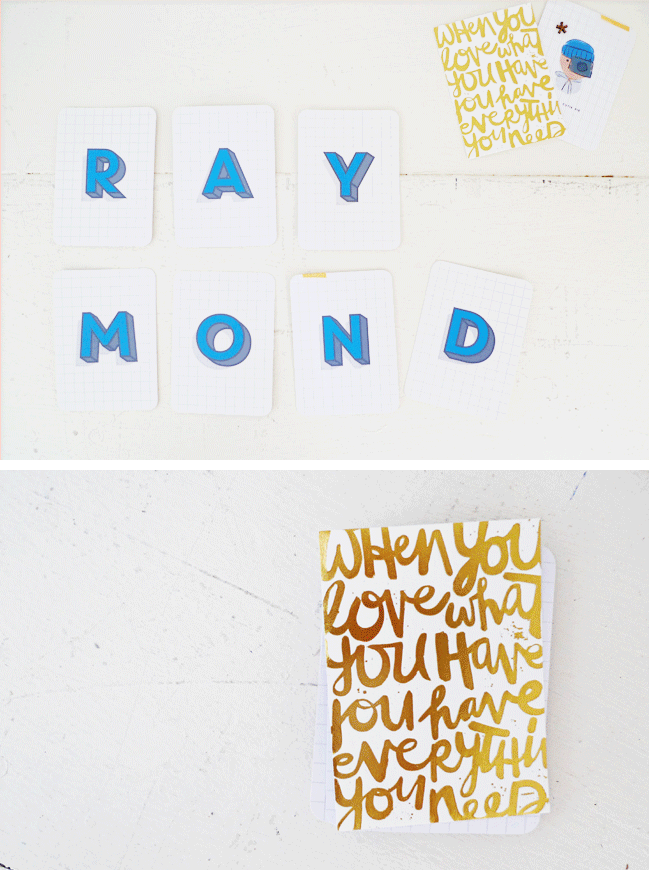 WHEN YOU
love what
YOU HAVE
you have
everythi
you NEED
R A Y
M O N D
WHEN YOU
love what
YOU HAVE
you have
everythi
you NEED